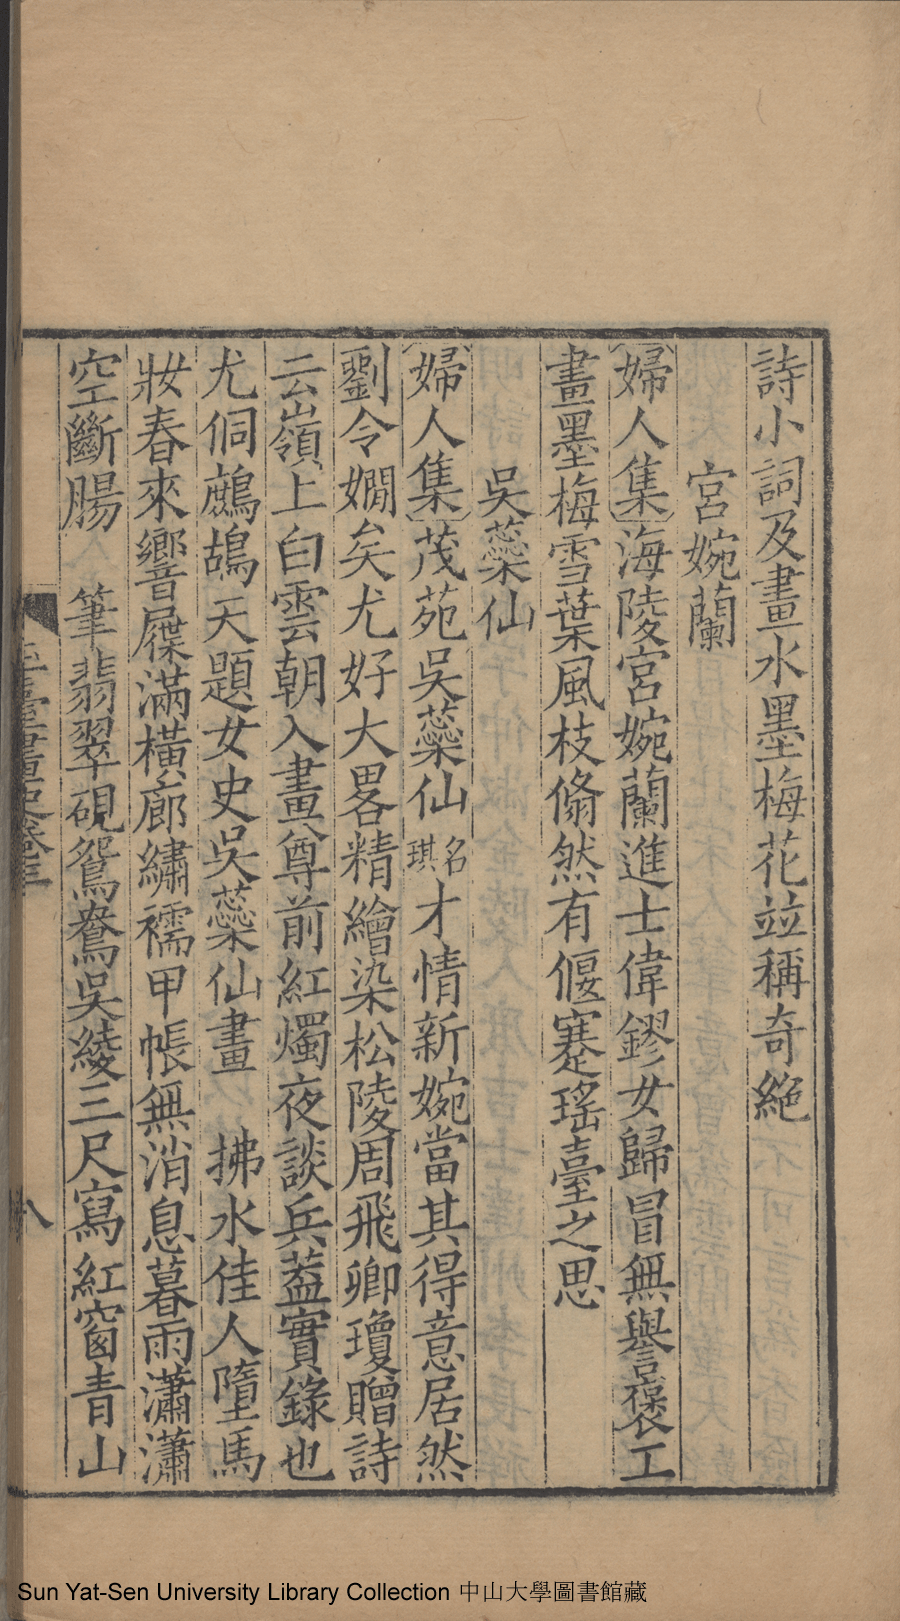 詩小詞及畫水墨梅花竝稱奇絶
宮婉蘭
婦人集海陵宮婉蘭進士偉鏐女歸冒無譽褒工
畫墨梅雪葉風枝翛然有偃蹇瑤臺之思
吳蘂仙
婦人集茂苑吳蘂仙名琪才情新婉當其得意居然
劉令嫺矣尤好大畧精繪染松陵周飛卿瓊贈詩
云嶺上白雲朝入畫尊前紅燭夜談兵葢實錄也
尤侗鷓鴣天題女史吳蘂仙畫 拂水佳人墮馬
妝春來響屧滿橫廊繡襦甲帳無消息暮雨瀟瀟
空斷腸 筆翡翠硯鴛鴦吳綾三尺寫紅窗青山
玉臺畫史卷三
八
Sun Yat-Sen University Library Collection 中山大學圖書館藏